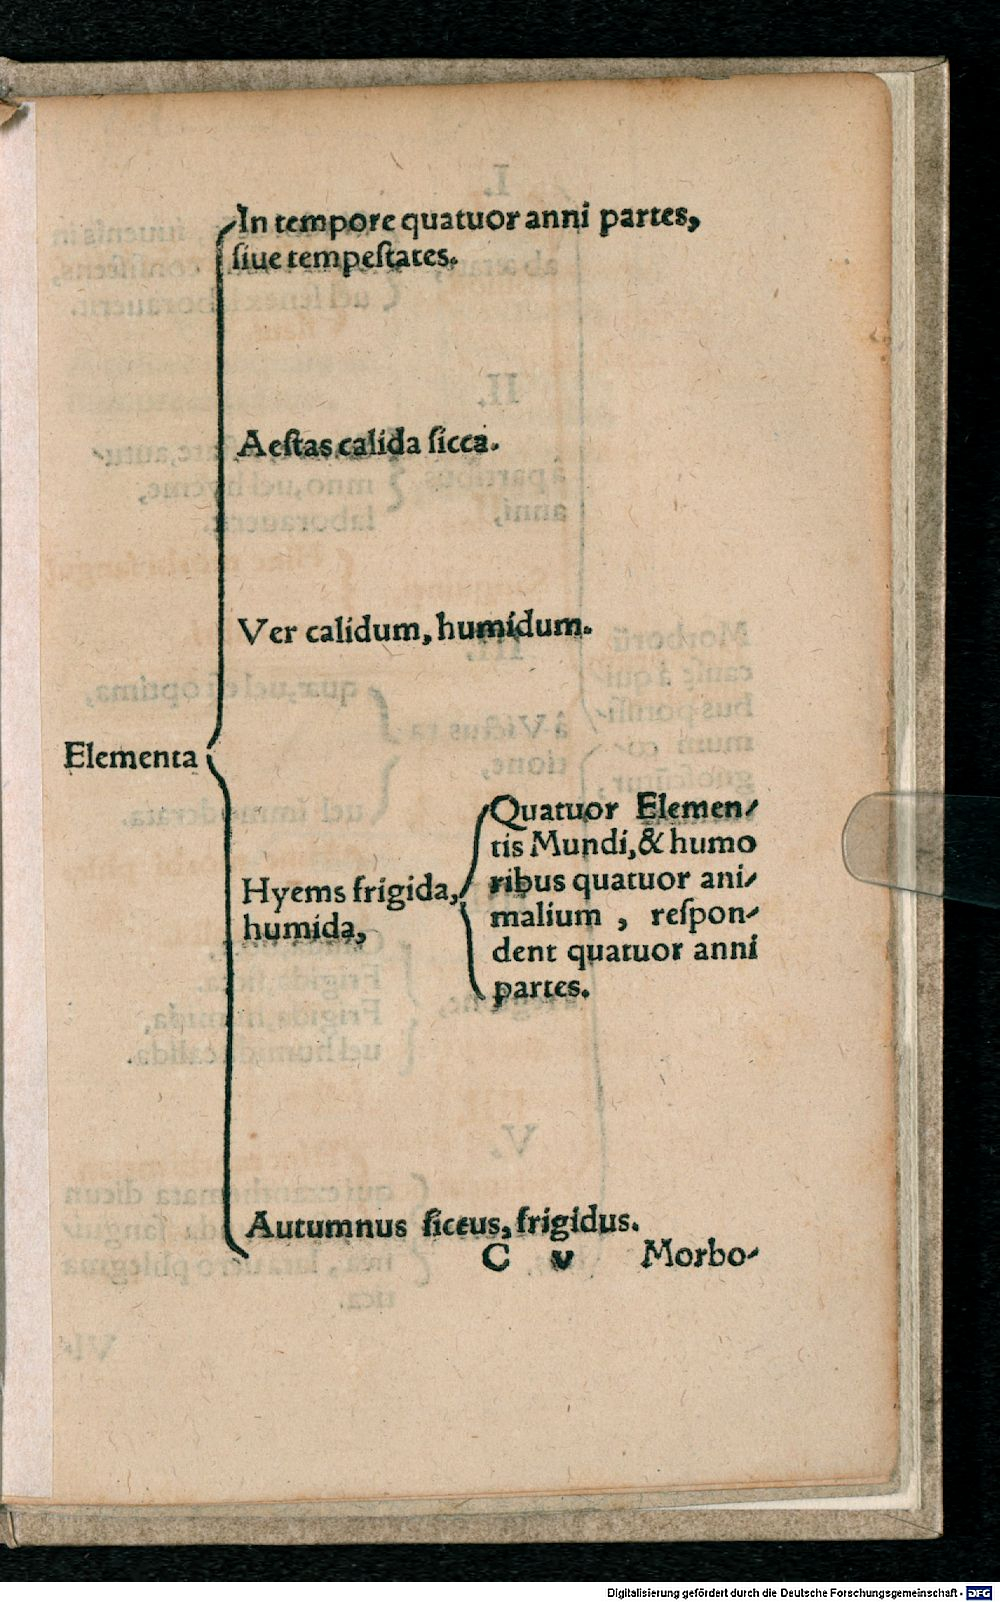 In tempore quatuor anni partes,
ſiue tempeſtates.
Aeſtas calida ſicca.
Ver calidum, humidum.
Elementa
Hyems frigida,
humida,
Quatuor Elemen-
tis Mundi, & humo
ribus quatuor ani-
malium , reſpon-
dent quatuor anni
partes.
Autumnus ſiccus, frigidus.
C v Morbo-
Digitalisierung gefördert durch die Deutsche Forschungsgemeinschaft - DFG